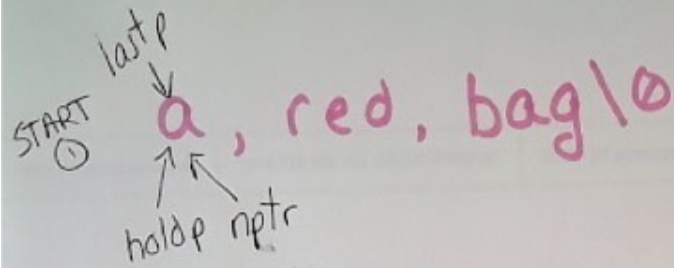 lastp
START a, red, bag\0
①
holdp nptr